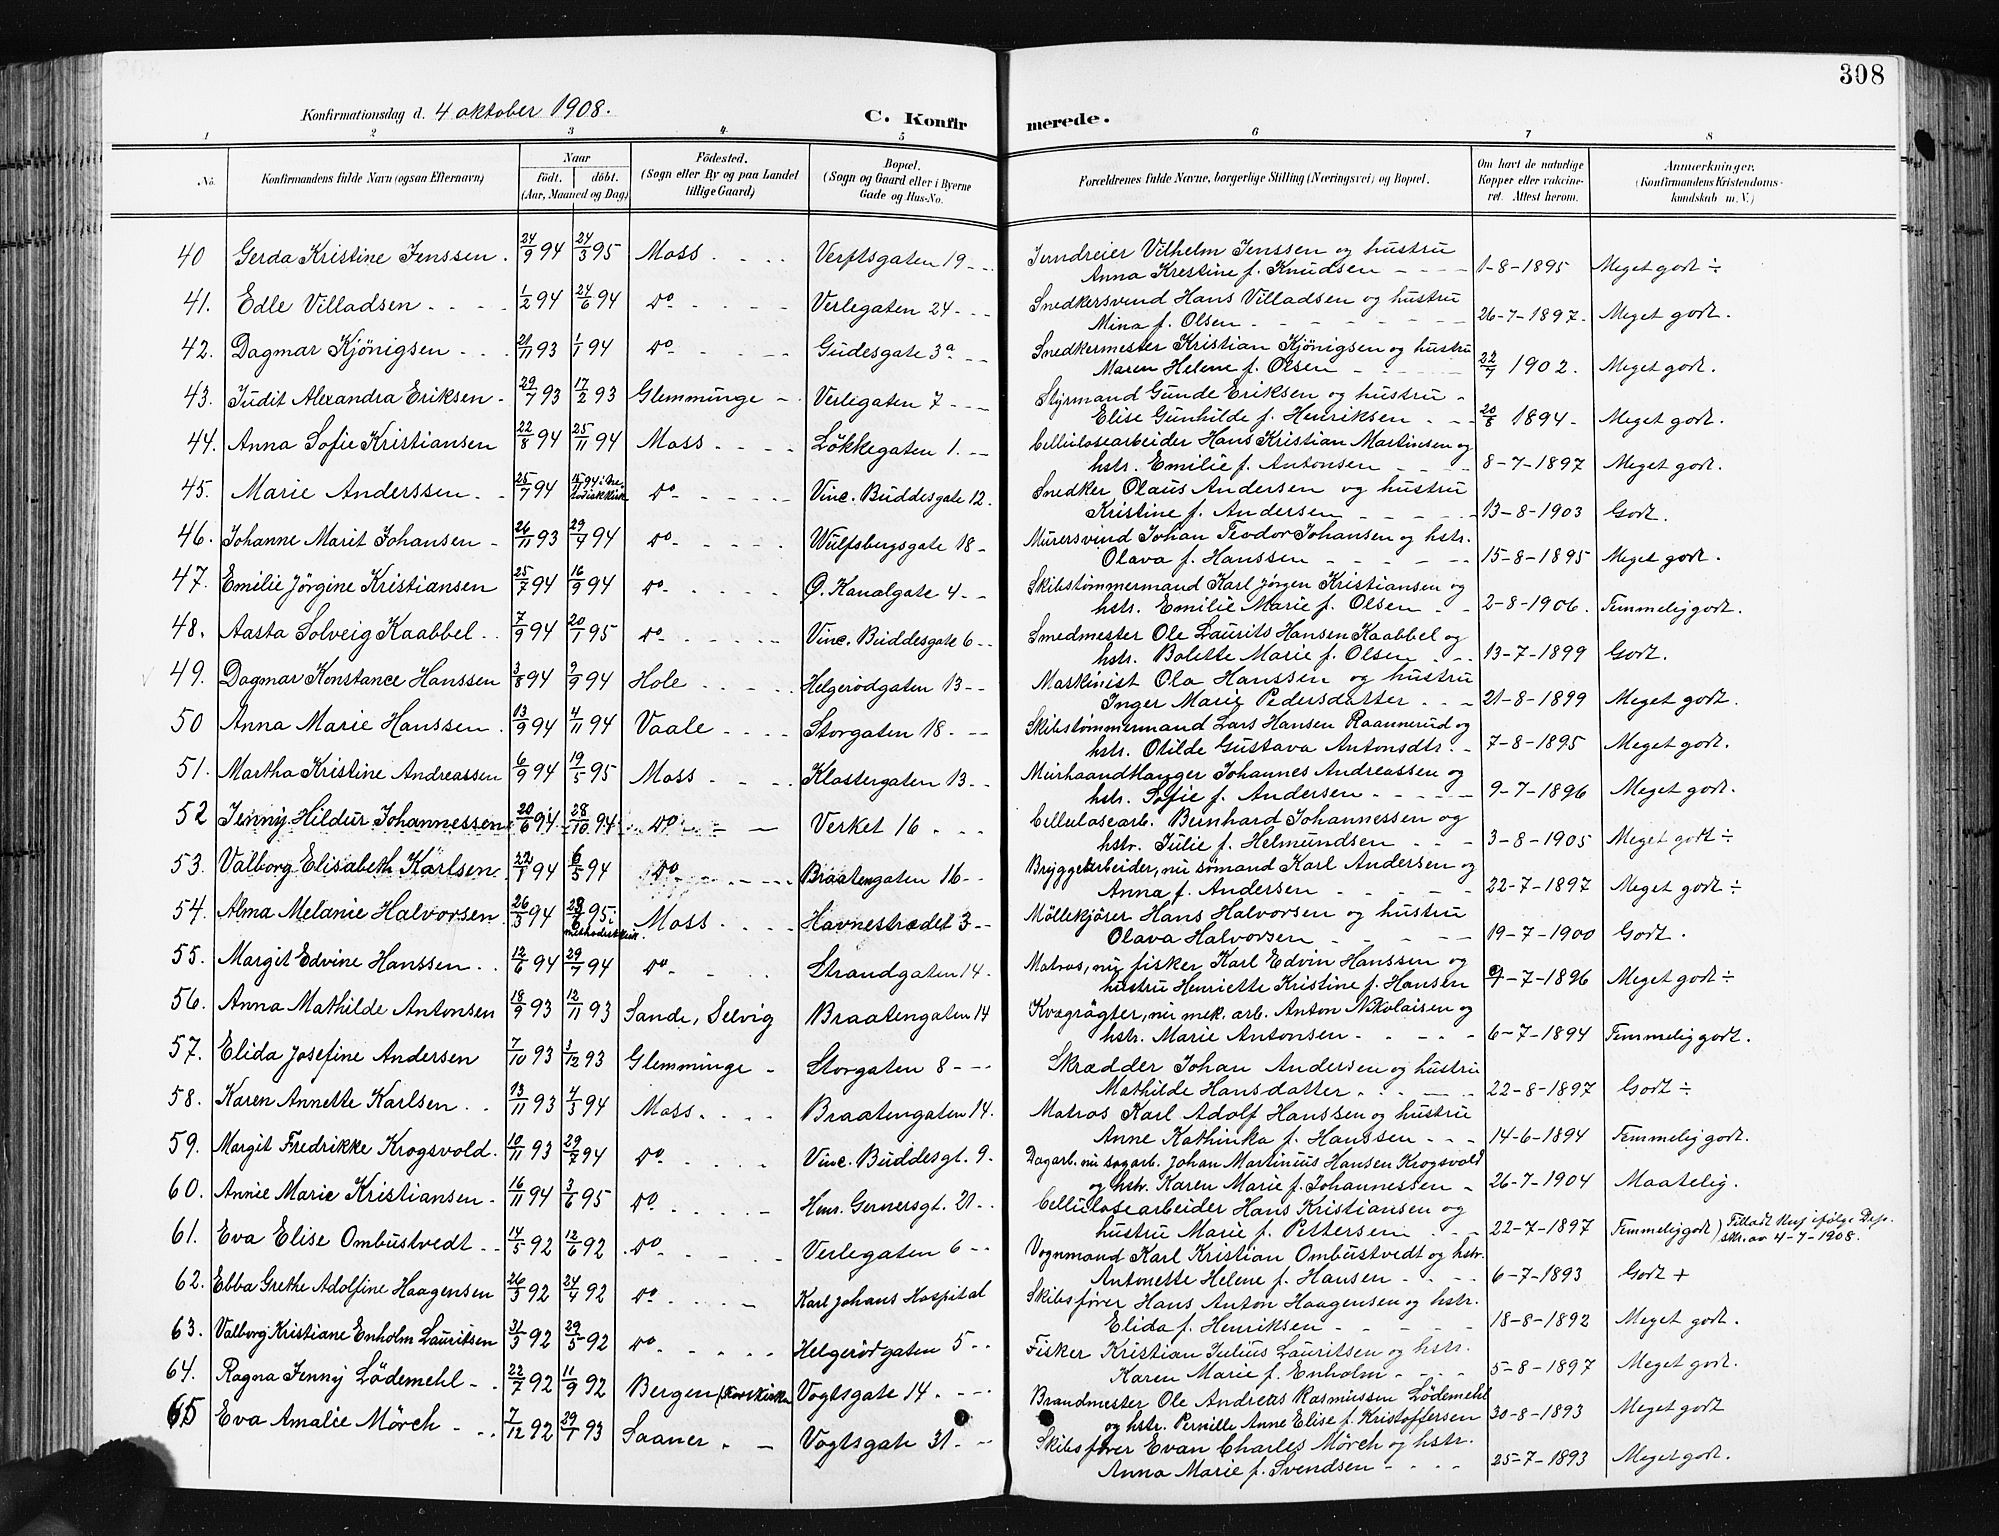 308
Konfirmationsdag d. 4 oktober 1908.
C. Konfirmerede.
1 2 3 4 5 6 7 8
No.
Konfirmandens fulde Navn (ogsaa Efternavn)
Naar
født. døbt.
(Aar, Maaned og Dag)
Födested.
(Sogn eller By og paa Landet
tillige Gaard)
Bopæl.
(Sogn og Gaard eller i Byerne
Gade og Hus-No.
Forældrenes fulde Navne, borgerlige Stilling (Næringsvei) og Bopæl.
Om havt de naturlige
Kopper eller vakcine-
ret. Attest herom.
Anmærkninger.
(Konfirmandens Kristendoms-
kundskab m. V.)
40 Gerda Kristine Jenssen. 24/9 94 24/3 95 Moss Verftsgaten 19 Jerndreier Vilhelm Jenssen og hustru
Anna Krestine f. Knudsen 1-8-1895 Meget godt ÷
41. Edle Villadsen 1/2 94 24/6 94 Do Verlegaten 24 Snedkersvend Hans Villadsen og hustru
Mina f. Olsen 26-7-1897 Meget godt.
42. Dagmar Kjönigsen 21/11 93 1/1 94 Do Gudesgate 3a Snedkermester Kristian Kjönigsen og hustru
Maren Helene f. Olsen 1902. Meget godt.
43. Judit Alexandra Eriksen 29/7 93 17/2 93 Glemminge Verlegaten 7 Styrmand Gunde Eriksen og hustru
Elise Gunhilde f. Henriksen 20/8 1894 Meget godt.
44. Anna Sofie Kristiansen 22/8 94 25/11 94 Moss Lökkegaten 1. Cellulosearbeider Hans Kristian Martinsen og
hstr. Emilie f. Antonsen 8-7-1897 Meget godt.
45. Marie Anderssen 25/7 94 Do Vinc. Buddesgate 12. Snedker Olaus Andersen og hustru
Kristine f. Andersen 13-8-1903 Godt.
46. Johanne Marit Johansen 26/11 93 29/7 94 Do Wulfsbergsgate 18 Murersvend Johan Teodor Johansen og hstr.
Olava f. Hanssen 15-8-1895 Meget godt.
47. Emilie Jörgine Kristiansen 25/7 94 16/9 94 Do Ø. Kanalgate 4 Skibstömmermand Karl Jörgen Kristiansen og
hstr. Emilie Marie f. Olsen 2-8-1906. Temmelig godt.
48. Aasta Solveig Kaabbel 7/9 94 20/1 95 Do Vinc. Buddesgate 6 Smedmester Ole Laurits Hansen Kaabbel og
hstr. Bolette Marie f. Olsen 13-7-1899 Godt.
49. Dagmar Konstance Hanssen 3/8 94 9/9 94 Hole Helgerödgaten 13 Maskinist Ola Hanssen og hustru
Inger Marie Pedersdatter 21-8-1899 Meget godt.
50 Anna Marie Hanssen 13/9 94 4/11 94 Vaale Storgaten 18 Skibstömmermand Lars Hansen Raannerud og
hstr. Otilde Gustava Antonsdtr. 7-8-1895 Meget godt.
51. Martha Kristine Andreassen 6/9 94 19/5 95 Moss Klostergaten 13 Murhaandtlanger Johannes Andreassen og
hstr. Sofie f. Andersen 9-7-1896 Meget godt.
52 Jenny Hildur Johannessen 20/6 94 28/10 94 Do Verket 16 Cellulosearb. Bernhard Johannessen og
hstr. Julie f. Helmundsen 3-8-1905 Meget godt ÷
53. Valborg Elisabeth Karlsen 22/1 94 6/5 94 Do Braatengaten 16 Bryggearbeider, nu sömand Karl Andersen og
Anna f. Andersen 22-7-1897 Meget godt ÷
54. Alma Melanie Halvorsen 26/3 94 95 i methodistkirk. Moss Havnestrædet 3 Möllekjörer Hans Halvorsen og hustru
Olava Halvorsen 19-7-1900 Godt.
55. Margit Edvine Hanssen 12/6 94 29/7 94 Do Strandgaten 14. Matros, nu fisker Karl Edvin Hanssen og
hustru Henriette Kristine f. Hansen 9-7-1896 Meget godt ÷
56. Anna Mathilde Antonsen 18/9 93 12/11 93 Sande, Selvig Braatengaten 14 Kvægrögter, nu mek. arb. Anton Nikolaisen og
hstr. Marie Antonsen 6-7-1894 Temmelig godt.
57. Elida Josefine Andersen 7/10 93 3/12 93 Glemminge Storgaten 8 Skrædder Johan Andersen og hustru
Mathilde Hansdatter 22-8-1897 Godt ÷
58. Karen Annette Karlsen 13/11 93 4/3 94 Moss Braatengaten 14. Matros Karl Adolf Hanssen og hustru
Anne Kathinka f. Hanssen 14-6-1894 Temmelig godt.
59. Margit Fredrikke Krogsvold. 10/11 93 29/7 94 Do Vinc. Buddesgt. 9. Dagarb. nu sagarb. Johan Martinius Hansen Krogsvold
og hstr. Karen Marie f. Johannessen 26-7-1904 Maatelig.
60. Annie Marie Kristiansen 16/11 94 3/6 95 Do Henr. Gernersgt. 21 Cellulosearbeider Hans Kristiansen og
hustru Marie f. Pettersen 22-7-1897 Temmelig godt) Tilladt Konf. ifölge Dep.
skr. av 4-7-1908.
61. Eva Elise Ombustvedt 14/5 92 12/6 92 Do Verlegaten 6 Vognmand Karl Kristian Ombustvedt og hstr.
Antonette Helene f. Hansen 6-7-1893 Godt +
62. Ebba Grethe Adolfine Haagensen 26/3 92 24/4 92 Do Karl Johans Hospital Skibsförer Hans Anton Haagensen og hstr.
Elida f. Henriksen 18-8-1892 Meget godt.
63. Valborg Kristiane Enholm Lauritsen 31/3 92 29/5 92 Do Helgerödgaten 5 Fisker Kristian Julius Lauritsen og hstr.
Karen Marie f. Enholm 5-8-1897 Meget godt.
64. Ragna Jenny Lödemehl 22/7 92 11/9 92 Bergen (Korskirken Vogtsgate 14 Brandmester Ole Andreas Rasmussen Lödemehl
og hstr. Pernille Anne Elise f. Kristoffersen 30-8-1893 Meget godt
65 Eva Amalie Mörch 7/12 92 29/1 93 Saaner Vogtsgate 31 Skibsförer Evan Charles Mörch og hstr.
Anna Marie f. Svendsen 25-7-1893 Meget godt.